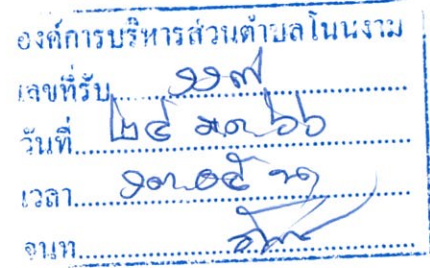 องค์การบริหารส่วนตำบลโนนงาม
เลขที่รับ ๑๑๗
วันที่ ๒๔ สค. ๖๖
เวลา ๑๓.๐๕ น
จนท.